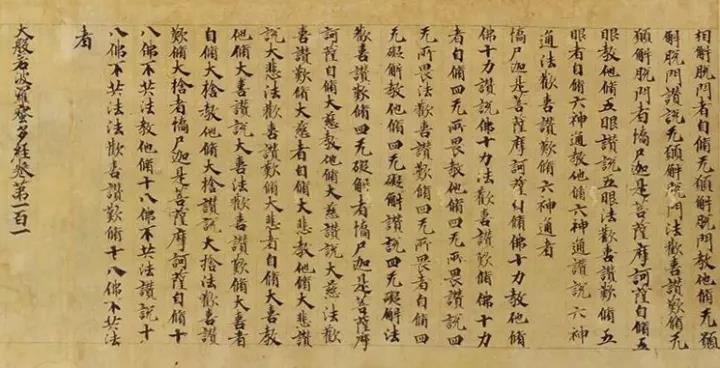 相解脫門者自脩无願解脫門教他脩无願
解脫門讚說无願解脫門法歡喜讚歎脩无
願解脫門者憍尸迦是菩薩摩訶薩自脩五
眼教他脩五眼讚說五眼法歡喜讚歎脩五
眼者自脩六神通教他脩六神通讚說六神
通法歡喜讚歎脩六神通者
憍尸迦是菩薩摩訶薩自脩佛十力教他脩
佛十力讚說佛十力法歡喜讚歎脩佛十力
者自脩四无所畏教他脩四无所畏讚說四
无所畏法歡喜讚歎脩四无所畏者自脩四
无礙解教他脩四无礙解讚說四无礙解法
歡喜讚歎脩四无礙解者憍尸迦是菩薩摩
訶薩自脩大慈教他脩大慈讚說大慈法歡
喜讚歎脩大慈者自脩大悲教他脩大悲讚
說大悲法歡喜讚歎脩大悲者自脩大喜教
他脩大喜讚說大喜法歡喜讚歎脩大喜者
自脩大捨教他脩大捨讚說大捨法歡喜讚
歎脩大捨者憍尸迦是菩薩摩訶薩自脩十
八佛不共法教他脩十八佛不共法讚說十
八佛不共法法歡喜讚歎脩十八佛不共法
者
大般若波羅蜜多經卷第一百一